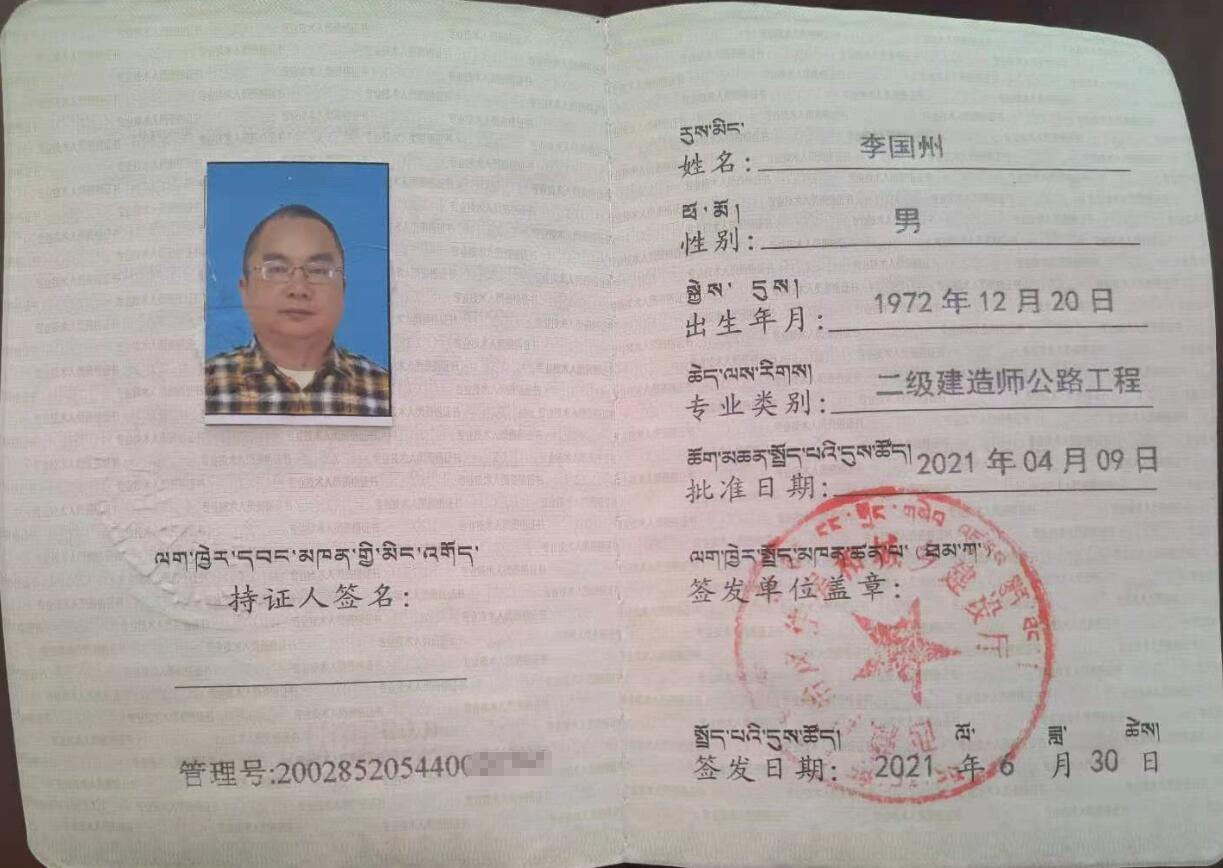 ལག་ཁྱེར་དབང་མཁན་གྱི་མིང་འགོད་
持证人签名：
管理号:2002852054400
རུས་མིང་
姓名：李国州
ཕོ་མོ།
性别：男
སྐྱེས་དུས།
出生年月：1972年12月20日
ཆེད་ལས་རིགས།
专业类别：二级建造师公路工程
ཆོག་མཆན་སྤྲོད་པའི་དུས་ཚོད།
批准日期：2021年04月09日
ལག་ཁྱེར་སྤྲོད་མཁན་ཚན་པ་（ཐམ་ག་
签发单位盖章：
སྤྲོད་པའི་དུས་ཚོད། ལོ་ ཟླ་ ཚེས།
签发日期：2021年6月30日
乡建设厅